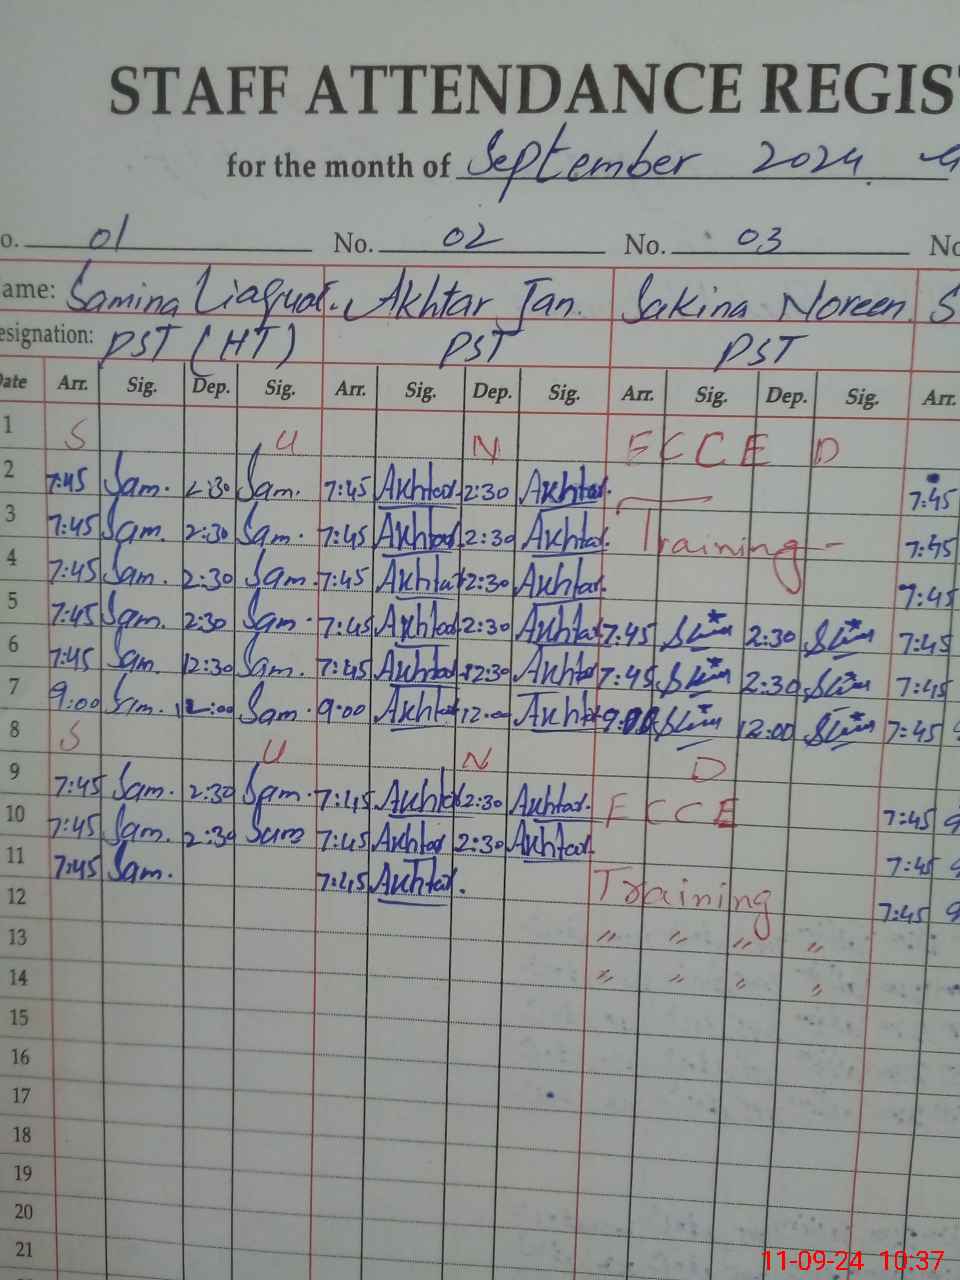 STAFF ATTENDANCE REGIS
for the month of September 2024
o. 01 No. 02 No. 03 No
ame: Samina Liaquat. Akhtar Jan. Sakina Noreen. S
esignation: PST (HT) PST PST
Date Arr. Sig. Dep. Sig. Arr. Sig. Dep. Sig. Arr. Sig. Dep. Sig. Arr.
1 S U N ECCE D
2 7:45 Sam. 2:30 Sam. 7:45 Akhtar. 2:30 Akhtar. 7:45
3 7:45 Sam. 2:30 Sam. 7:45 Akhtar 2:30 Akhtar. Training - 7:45
4 7:45 Sam. 2:30 Sam. 7:45 Akhtar 2:30 Akhtar. 7:45
5 7:45 Sam. 2:30 Sam. 7:45 Akhtar 2:30 Akhtar 7:45 2:30 7:45
6 7:45 Sam. 12:30 Sam. 7:45 Akhtar 12:30 Akhtar 7:45 2:30 7:45
7 9:00 Sam. 12:00 Sam. 9:00 Akhtar 12:00 Akhtar 9:00 12:00 7:45
8 S U N D
9 7:45 Sam. 2:30 Sam. 7:45 Akhtar 2:30 Akhtar. ECCE 7:45
10 7:45 Sam. 2:30 Sam 7:45 Akhtar 2:30 Akhtar. 7:45
11 7:45 Sam. 7:45 Akhtar. Training 7:45
12
13 " " " "
14 " " " "
15
16
17
18
19
20
21
11-09-24 10:37